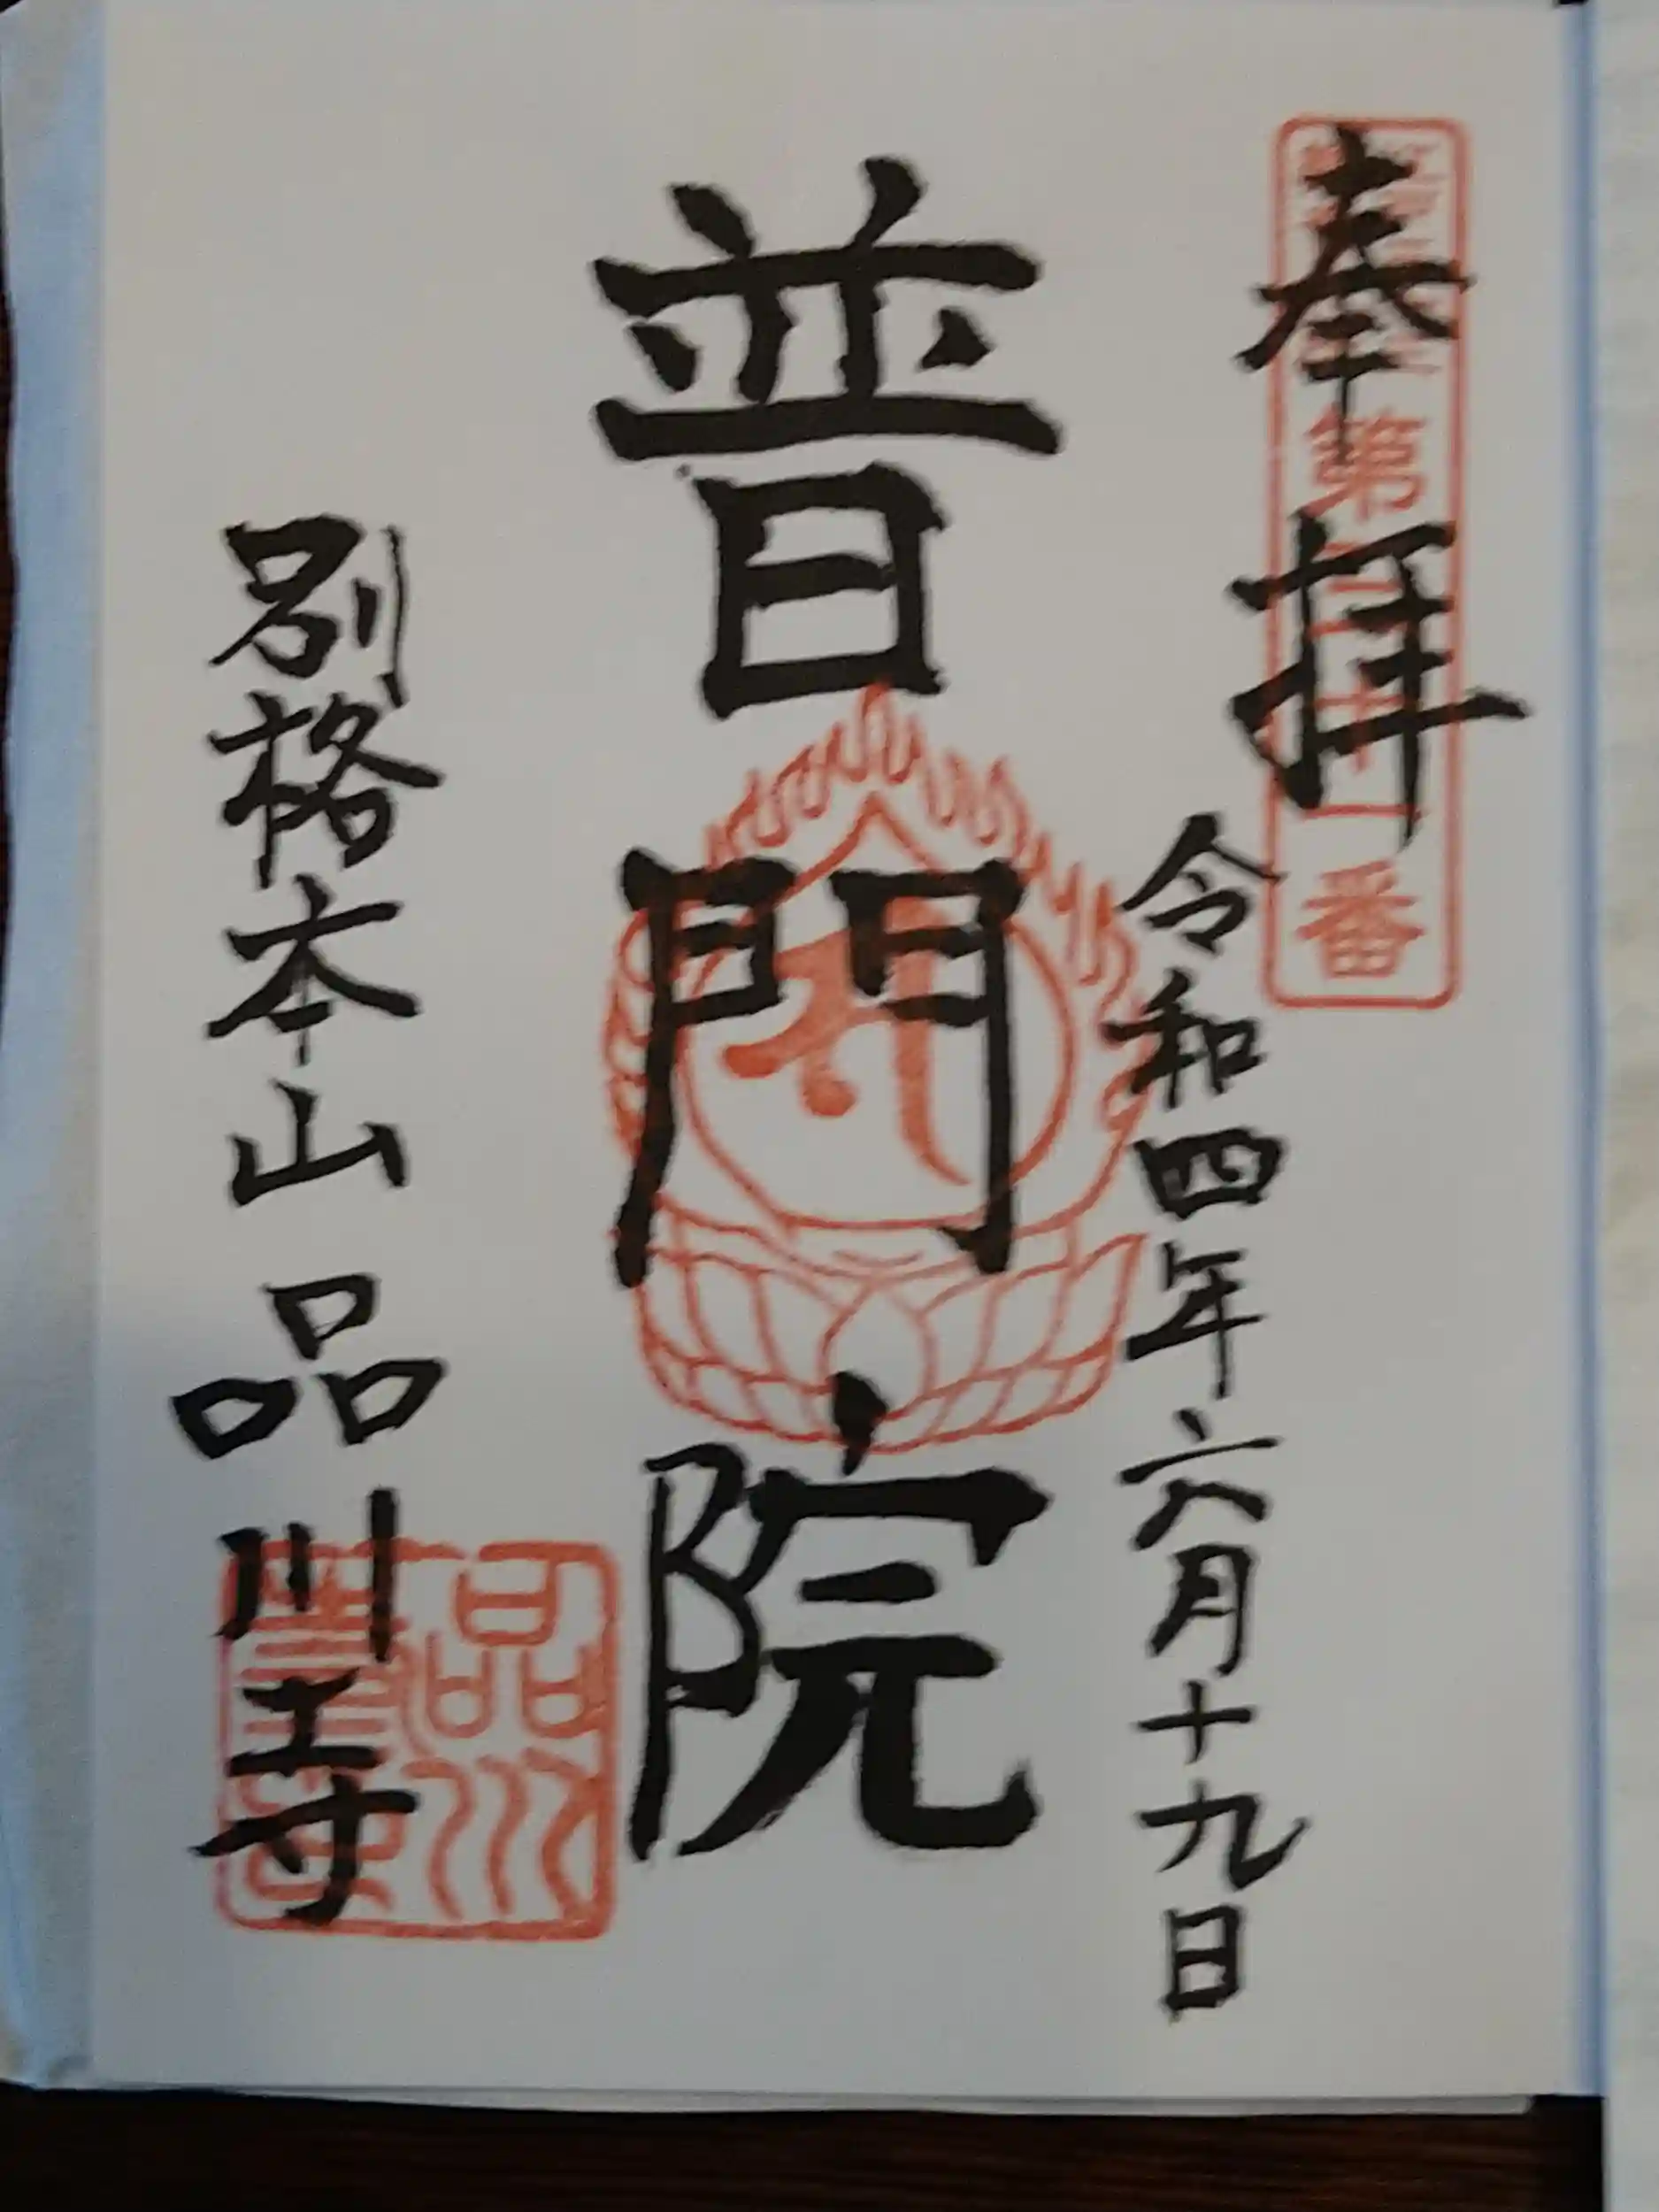 奉拝
第三十一番
令和四年六月十九日
普門院
別格本山 品川寺
品川